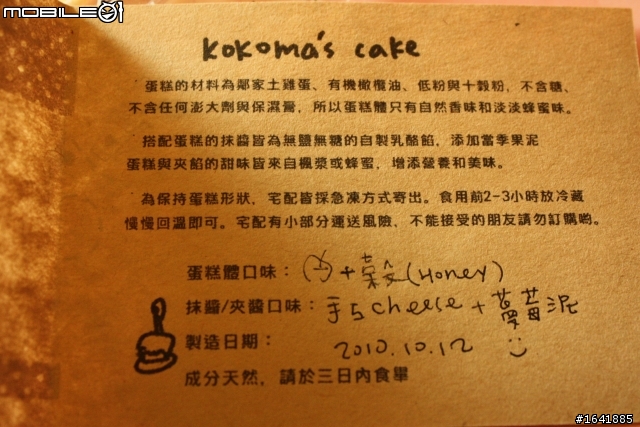 MOBILE01
KOKOMA's cake
蛋糕的材料為鄰家土雞蛋、有機橄欖油、低粉與十穀粉，不含糖、
不含任何澎大劑與保濕膏，所以蛋糕體只有自然香味和淡淡蜂蜜味。
搭配蛋糕的抹醬皆為無鹽無糖的自製乳酪餡，添加當季果泥
蛋糕與夾餡的甜味皆來自楓漿或蜂蜜，增添營養和美味。
為保持蛋糕形狀，宅配皆採急凍方式寄出。食用前2-3小時放冷藏
慢慢回溫即可。宅配有小部分運送風險，不能接受的朋友請勿訂購喲。
蛋糕體口味：+穀(Honey)
抹醬/夾醬口味：手ㄅcheese+泥
製造日期：2010.10.12
成分天然，請於三日內食畢
#1641885